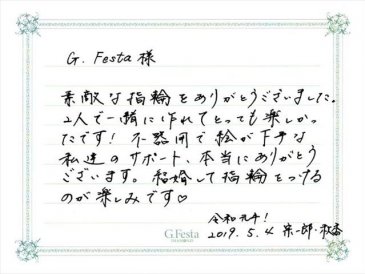 G. Festa 様
素敵な指輪をありがとうございました。
2人で一緒に作れてとっても楽しかっ
たです! 不器用で絵が下手な
私達のサポート、本当にありがとう
ございます。結婚して指輪をつける
のが楽しみです♡
令和元年!
2019. 5. 4 宗一郎・
G.Festa